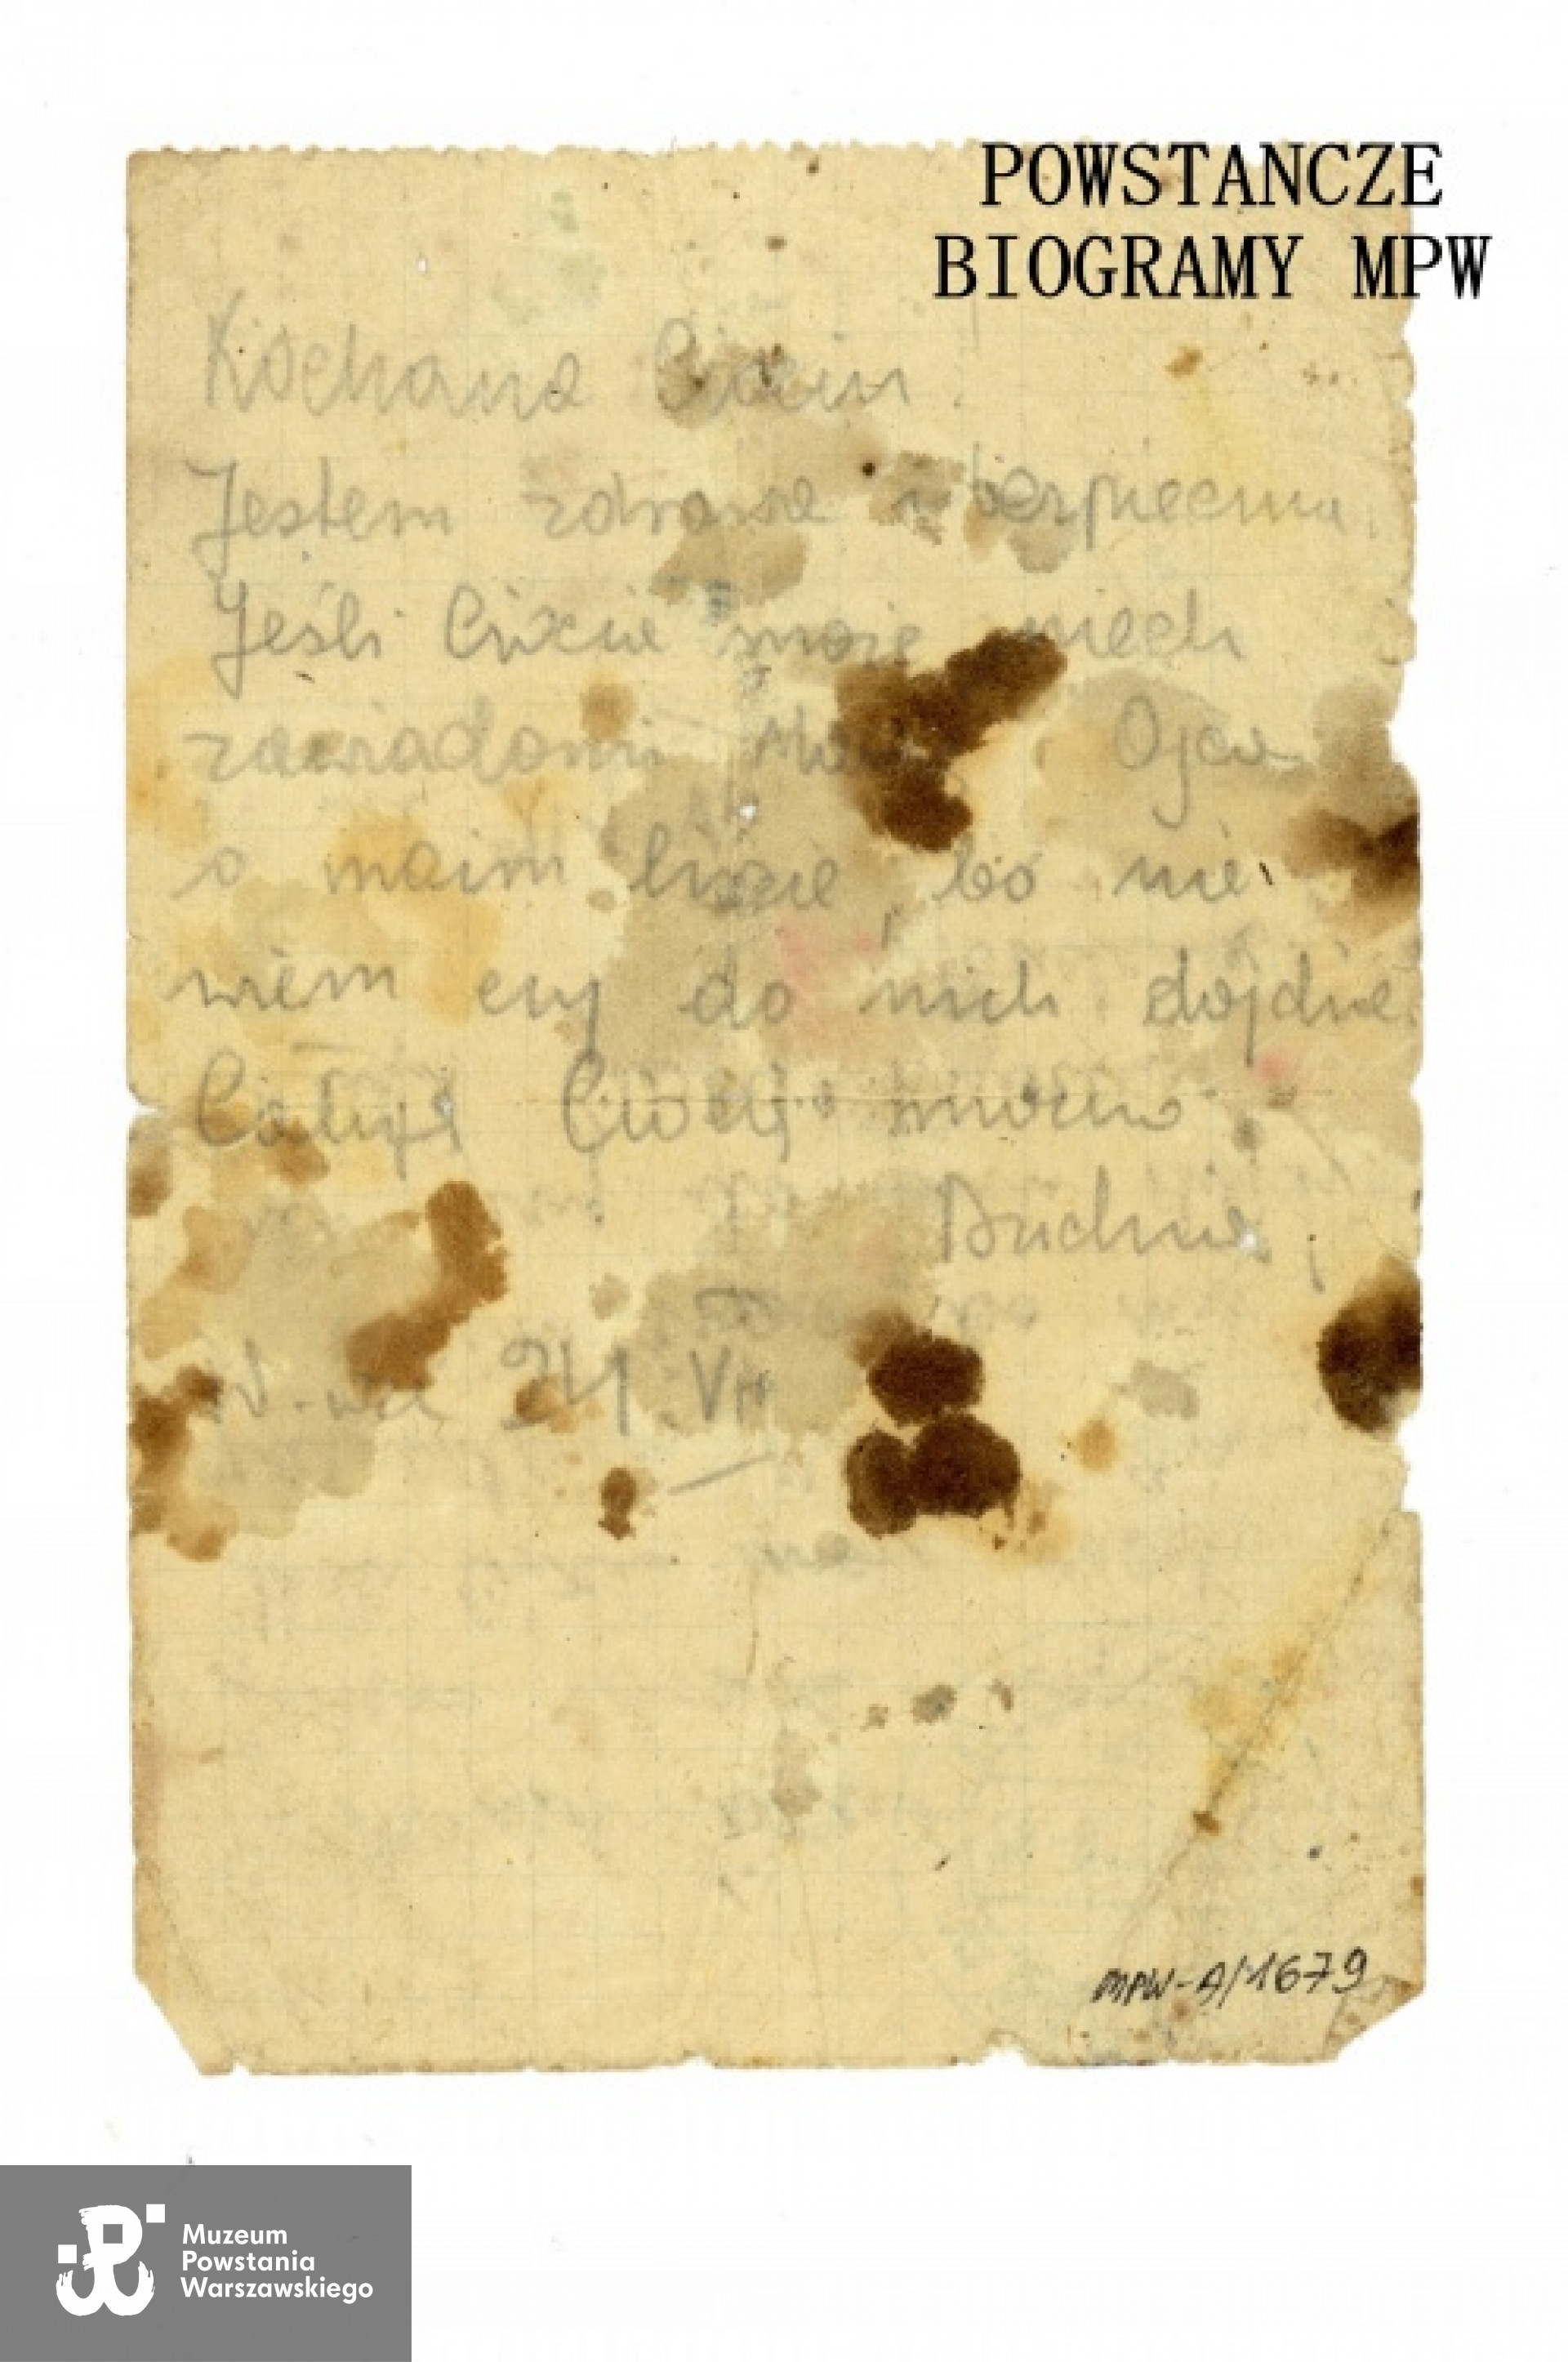 POWSTANCZE
BIOGRAMY MPW
Kochana Ciociu.
Jestem zdrowa i bezpieczna.
Jeśli Ciocia może niech
zawiadomi Ojca
o moim liście, bo nie
wiem czy do nich dojdzie.
Całuję Ciocię mocno
W-wa 24 VIII
MPW-A/1679
Muzeum
Powstania
Warszawskiego